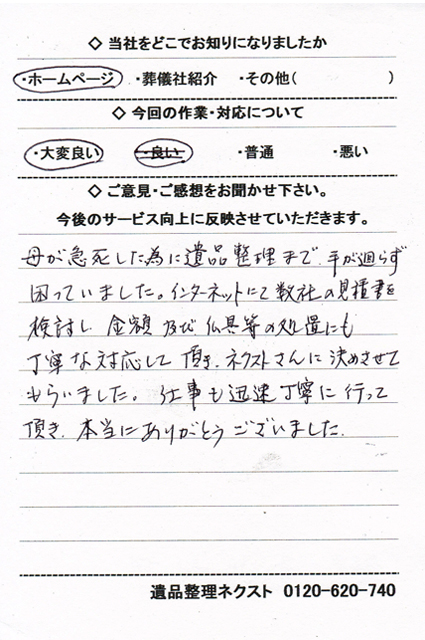 ◇ 当社をどこでお知りになりましたか
・ホームページ ・葬儀社紹介 ・その他( )
◇ 今回の作業・対応について
・大変良い ・良い ・普通 ・悪い
◇ ご意見・ご感想をお聞かせ下さい。
今後のサービス向上に反映させていただきます。
母が急死した為に遺品整理まで 手が廻らず
困っていました。インターネットにて数社の見積書を
検討し 金額 及び 仏具等の処置にも
丁寧な対応して頂き、ネクストさんに決めさせて
もらいました。 仕事も迅速丁寧に行って
頂き、本当にありがとうございました。
遺品整理ネクスト 0120-620-740